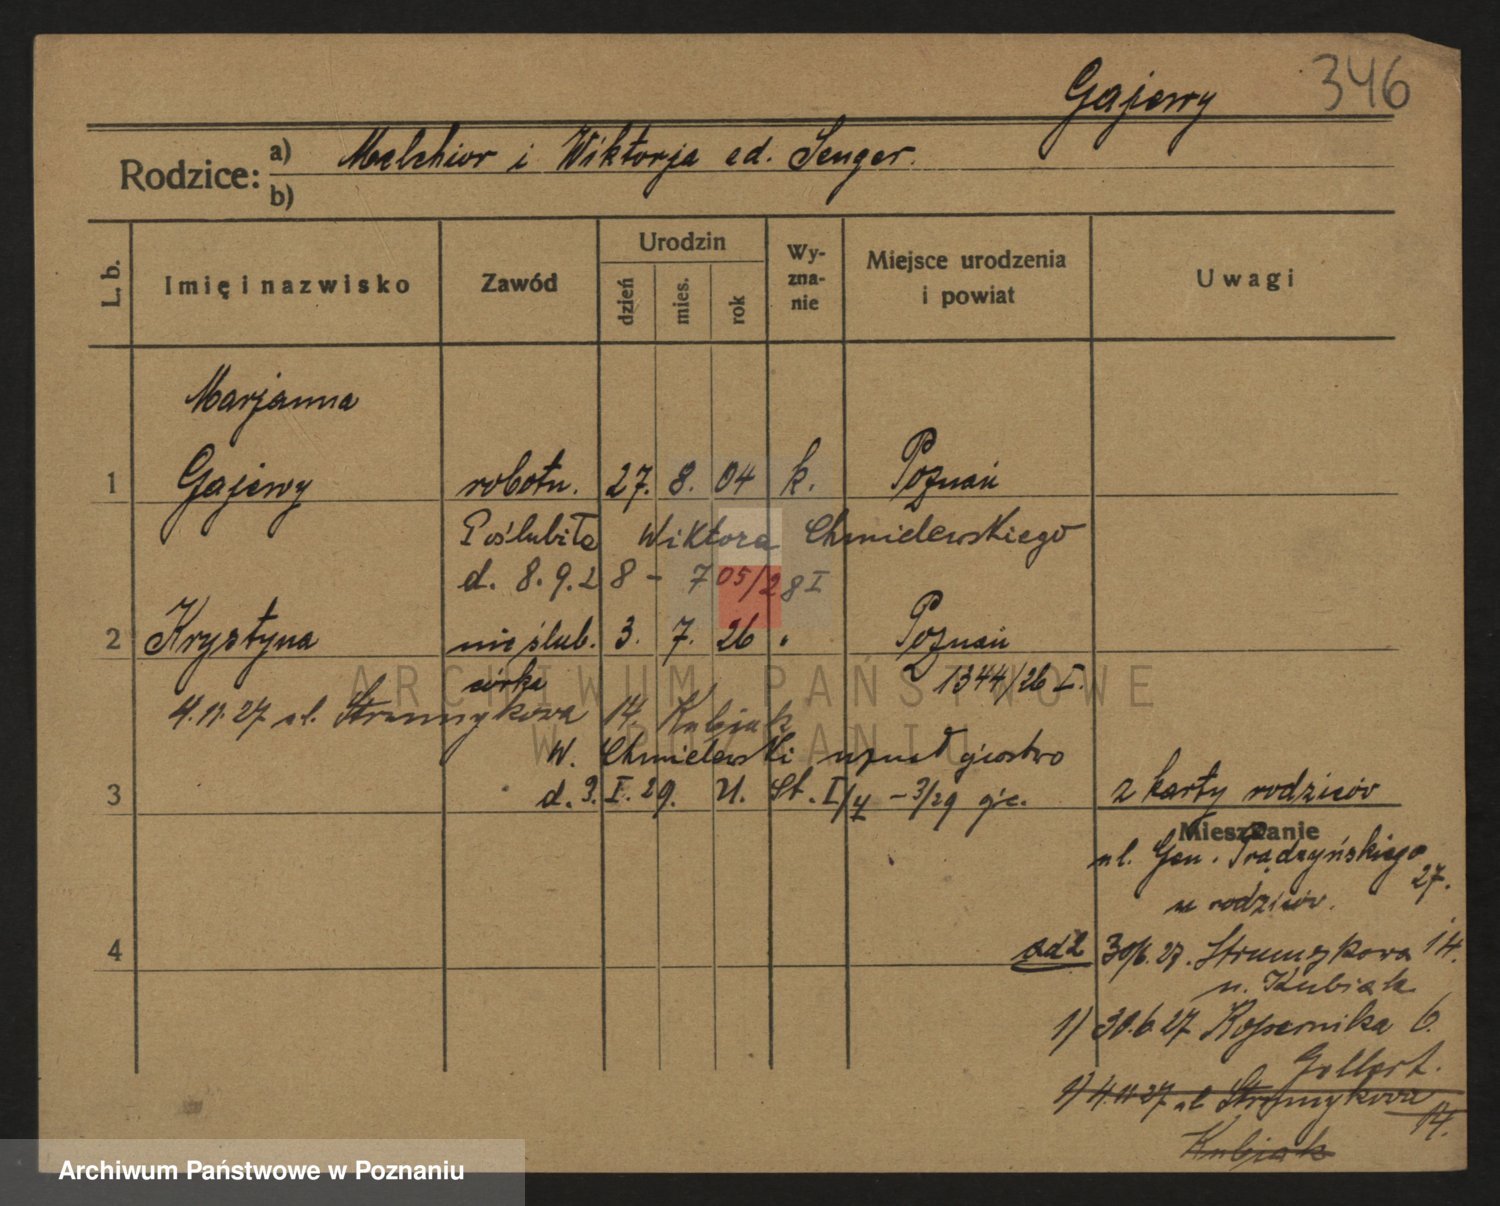 346
Gajewy
Rodzice: a) Melchior i Wiktorja ed. Senger.
b)
L. b. Imię i nazwisko Zawód Urodzin dzień mies. rok Wyznanie Miejsce urodzenia i powiat Uwagi
Marjanna
1 Gajewy robotn. 27. 8. 04 k. Poznań
Poślubiła Wiktora Chmielewskiego
d. 8.9.28 - 705/28 I
2 Krystyna nieślub. 3. 7. 26 " Poznań
córka 1344/26 I.
4.11.27 ul. Strumykowa 14. Kubiak
W. Chmielewski uznał ojcostwo
3 d. 3. I. 29. U. St. I/ - 3/29 z karty rodziców
Mieszkanie
ul. Gen. Prądzyńskiego 27.
u rodziców.
4 ad 2 30/6.27. Strumykowa 14.
u. Kubiak
1) 30.6.27 Kopernika 6.
Gollert.
1) 4.11.27 ul Strumykowa 14.
Kubiak
ARCHIWUM PAŃSTWOWE
W POZNANIU
Archiwum Państwowe w Poznaniu